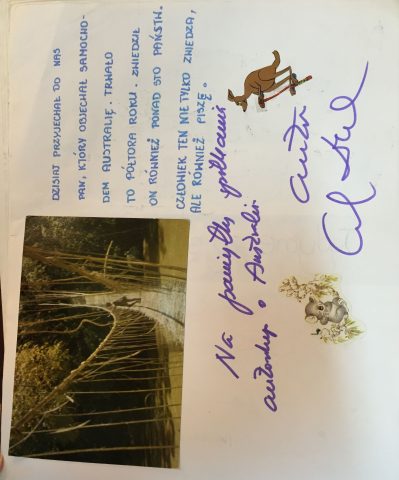 DZISIAJ PRZYJECHAŁ DO NAS
PAN, KTÓRY OBJECHAŁ SAMOCHO-
DEM AUSTRALIĘ. TRWAŁO
TO PÓŁTORA ROKU. ZWIEDZIŁ
ON RÓWNIEŻ PONAD STO PAŃSTW.
CZŁOWIEK TEN NIE TYLKO ZWIEDZA,
ALE RÓWNIEŻ PISZE.
Na pamiątkę spotkania
o Australii
autor